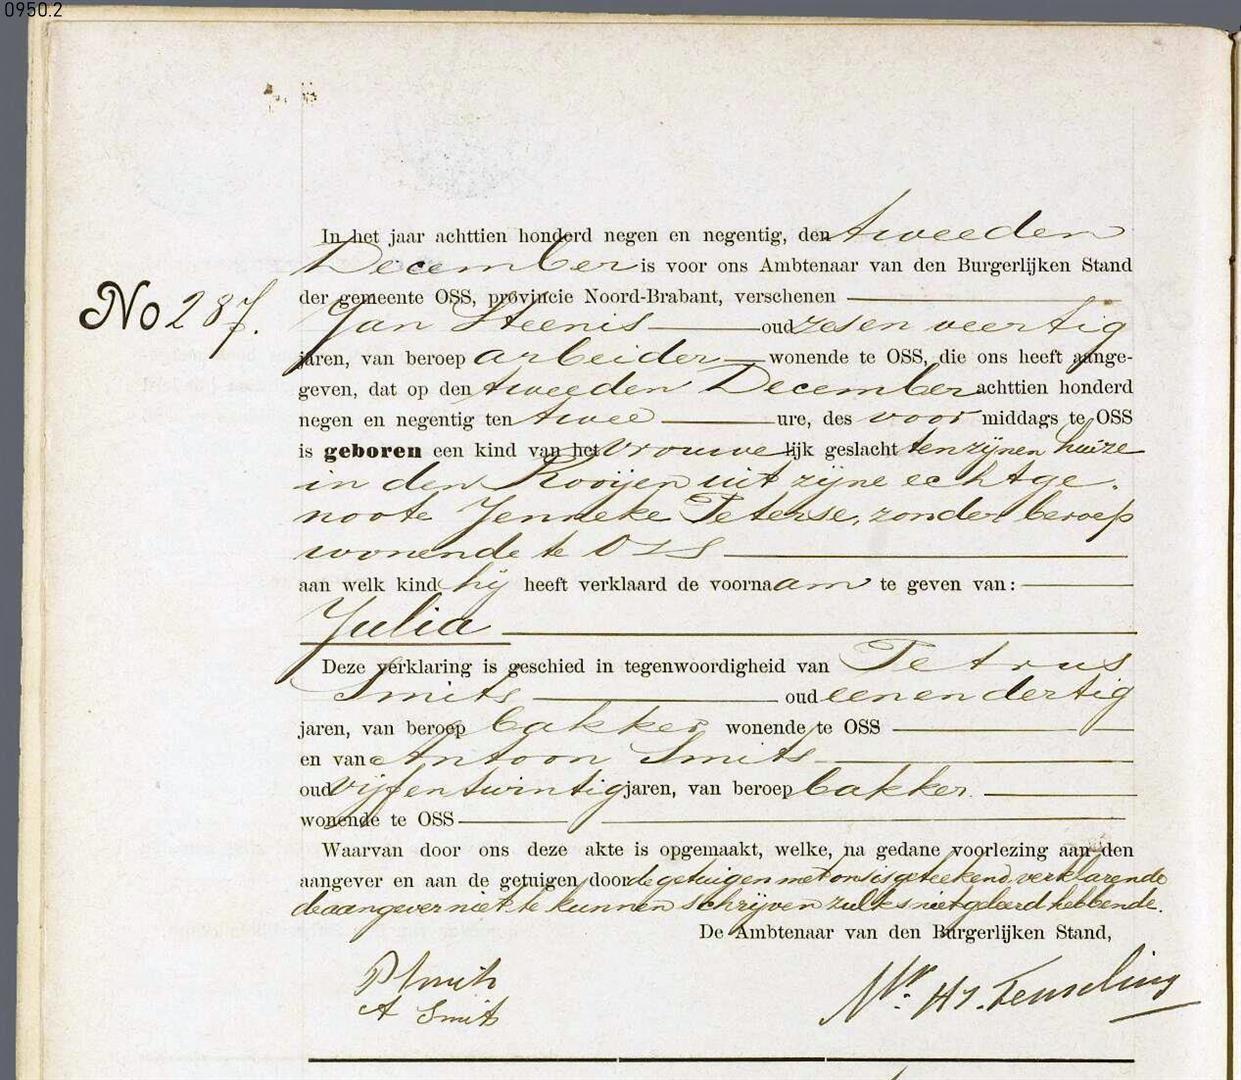 0950.2
In het jaar achttien honderd negen en negentig, den tweeden
December is voor ons Ambtenaar van den Burgerlijken Stand
der gemeente OSS, provincie Noord-Brabant, verschenen
No 287.
Jan Steenis oud zes en veertig
jaren, van beroep arbeider wonende te OSS, die ons heeft aange-
geven, dat op den tweeden December achttien honderd
negen en negentig ten twee ure, des voor middags te OSS
is geboren een kind van het vrouwe lijk geslacht ten zijnen huize
in den Kooijen uit zijne echtge-
noote Jenneke Peterse, zonder beroep
wonende te OSS
aan welk kind hij heeft verklaard de voornaam te geven van:
Julia
Deze verklaring is geschied in tegenwoordigheid van Petrus
Smits oud een en dertig
jaren, van beroep bakker wonende te OSS
en van Antoon Smits
oud vijf en twintig jaren, van beroep bakker
wonende te OSS
Waarvan door ons deze akte is opgemaakt, welke, na gedane voorlezing aan den
aangever en aan de getuigen door de getuigen met ons is geteekend, verklarende
de aangever niet te kunnen schrijven zulks niet geleerd hebbende.
De Ambtenaar van den Burgerlijken Stand,
P Smits
A Smits
Mr.